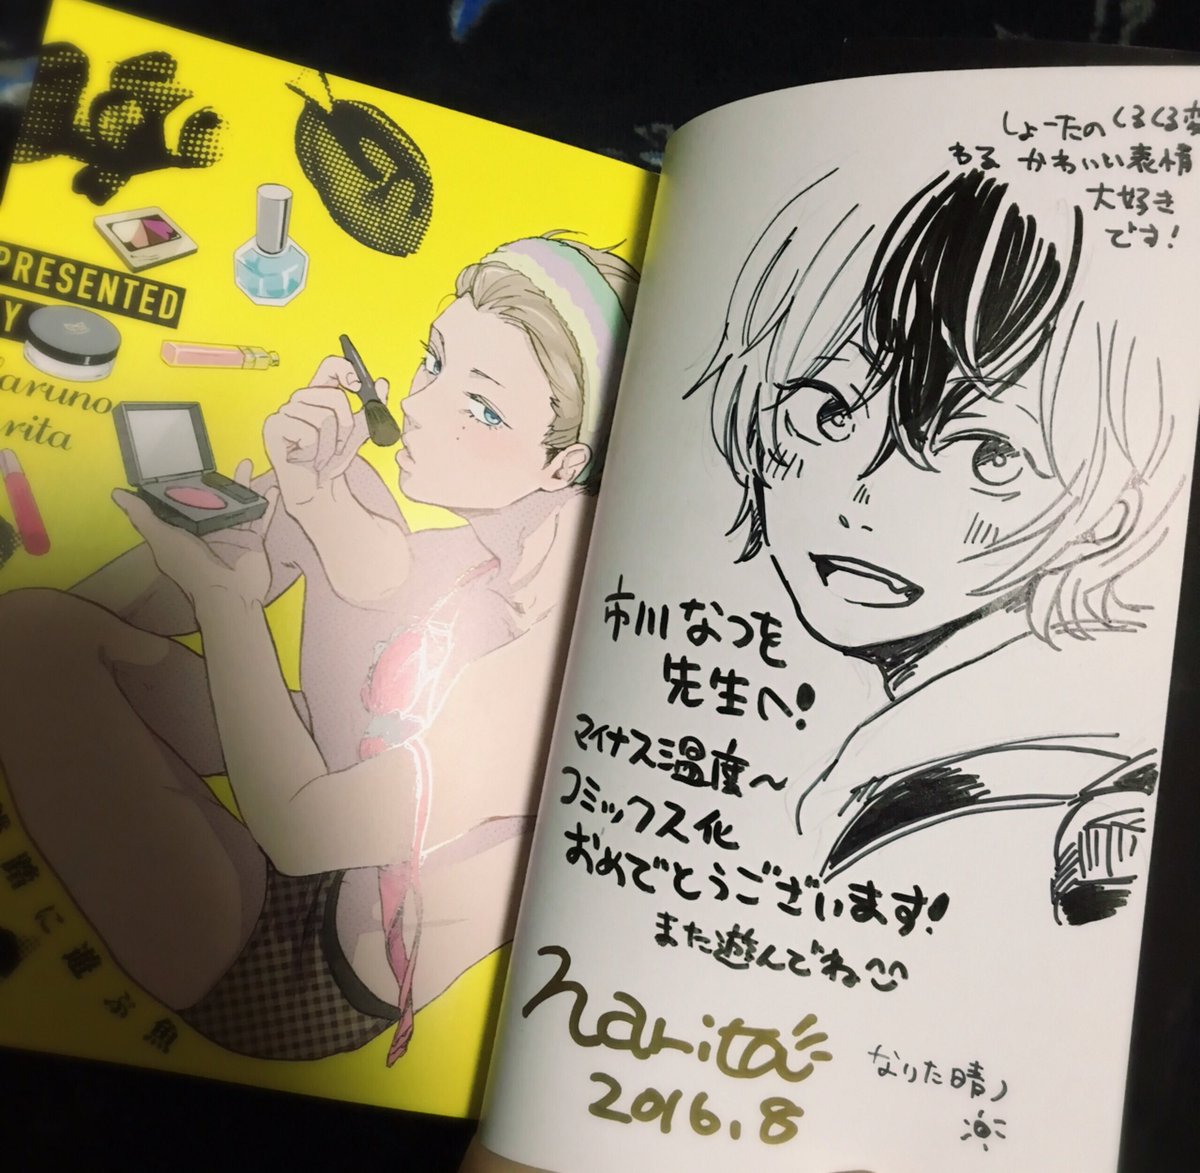 PRESENTED
Y
aruno
rita
に遊ぶ魚
しょーたのくるくる変
わる かわいい表情
大好き
です!
市川なつを
先生へ!
マイナス温度〜
コミックス化
おめでとうございます!
また遊んでね
narita
2016.8
なりた晴ノ